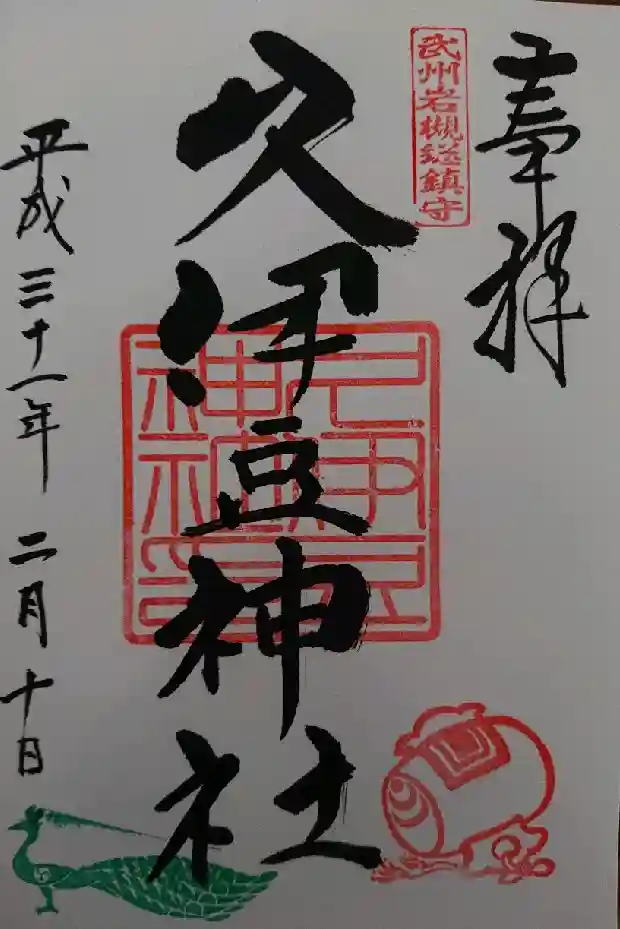 奉拝
武州岩槻総鎮守
久伊豆神社
平成三十一年二月十日